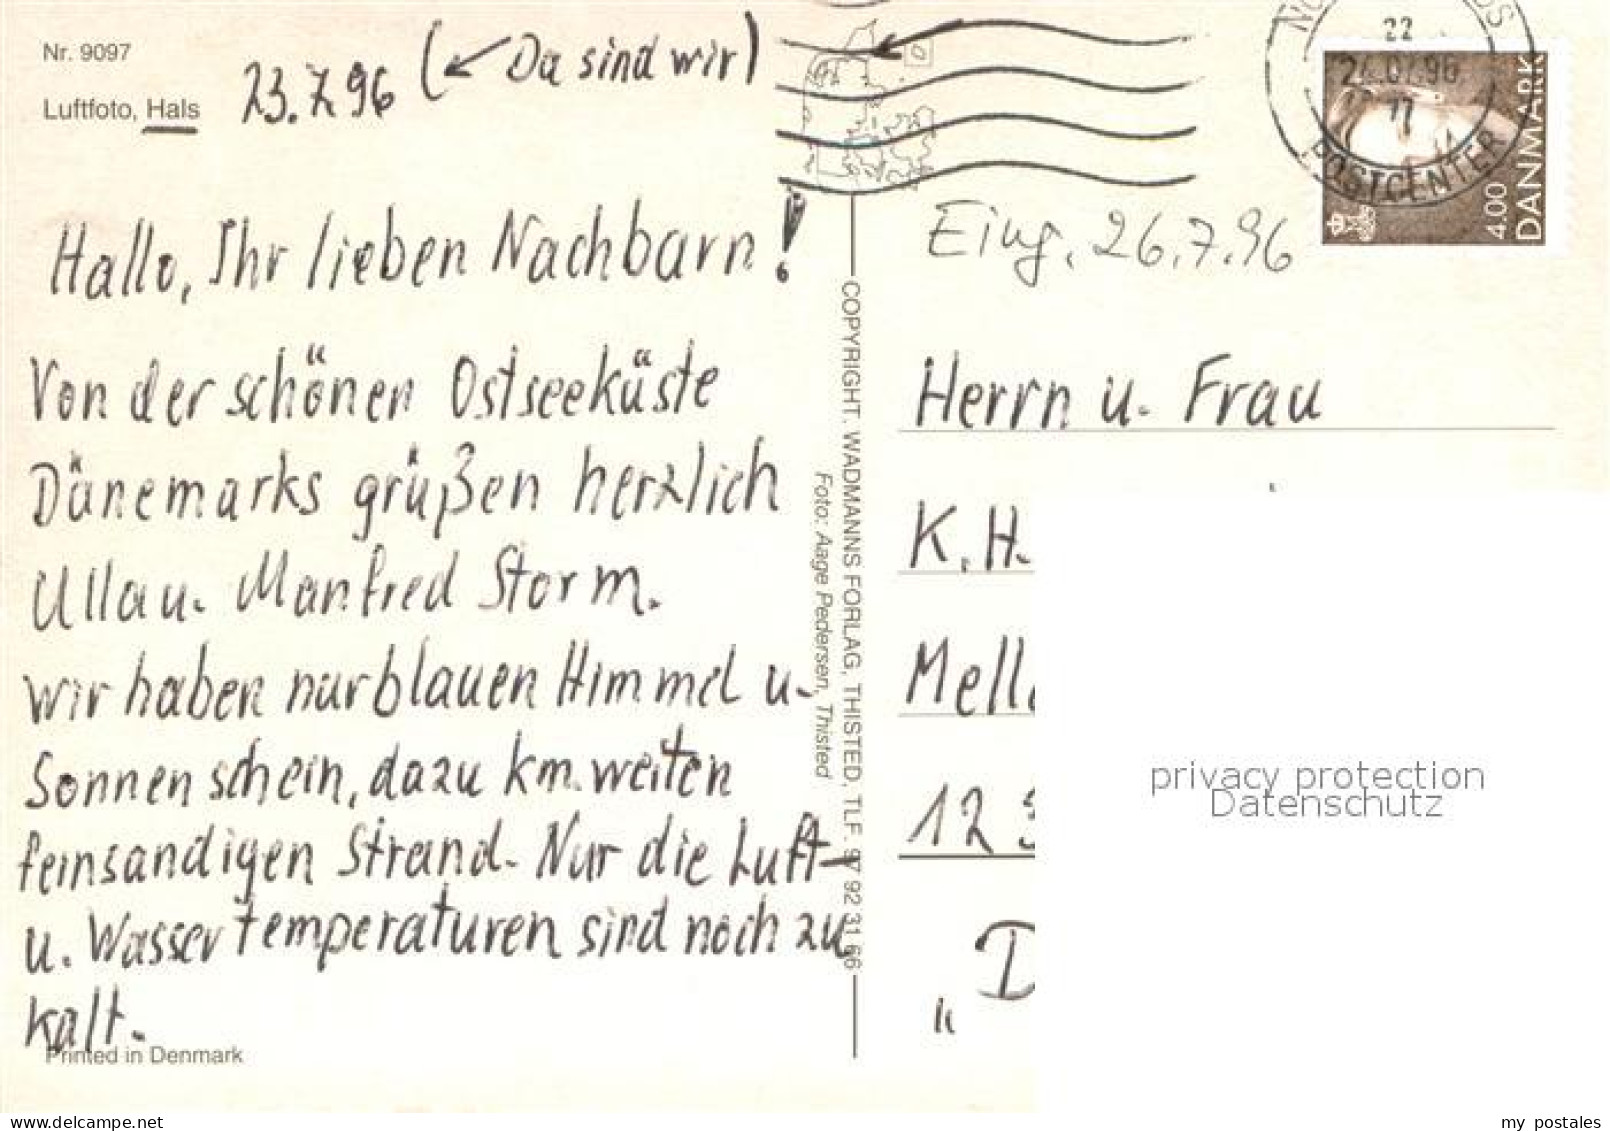 Nr. 9097
Luftfoto, Hals
23.7.96 (← Da sind wir)
Hallo, Ihr lieben Nachbarn!
Von der schönen Ostseeküste
Dänemarks grüßen herzlich
Ulla u. Manfred Storm.
Wir haben nur blauen Himmel u.
Sonnenschein, dazu km. weiten
feinsandigen Strand. Nur die Luft-
u. Wassertemperaturen sind noch zu
kalt.
Printed in Denmark
COPYRIGHT. WADMANNS FORLAG, THISTED, TLF. 97 92 31 66
Foto: Aage Pedersen, Thisted
22
POSTCENTER
4.00
DANMARK
Eing. 26.7.96
Herrn u. Frau
K.H.
Mell
12 3
"D
privacy protection
Datenschutz
delcampe.net
my_postales